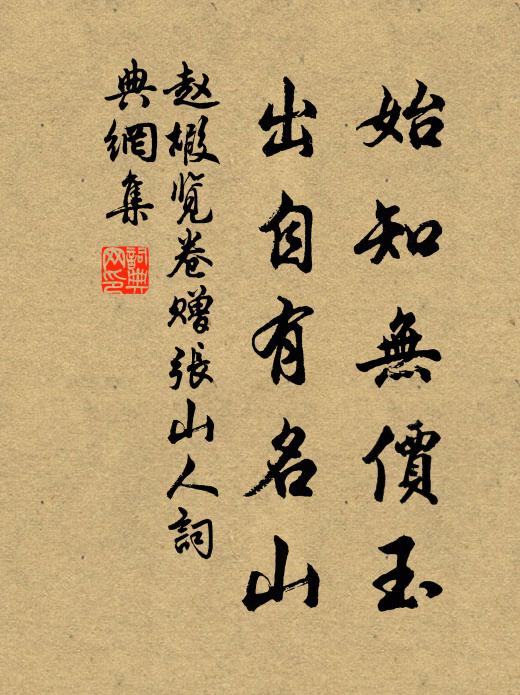 始知無價玉
出自有名山
赵嘏览卷赠張山人詞
典網集
詞典
网印